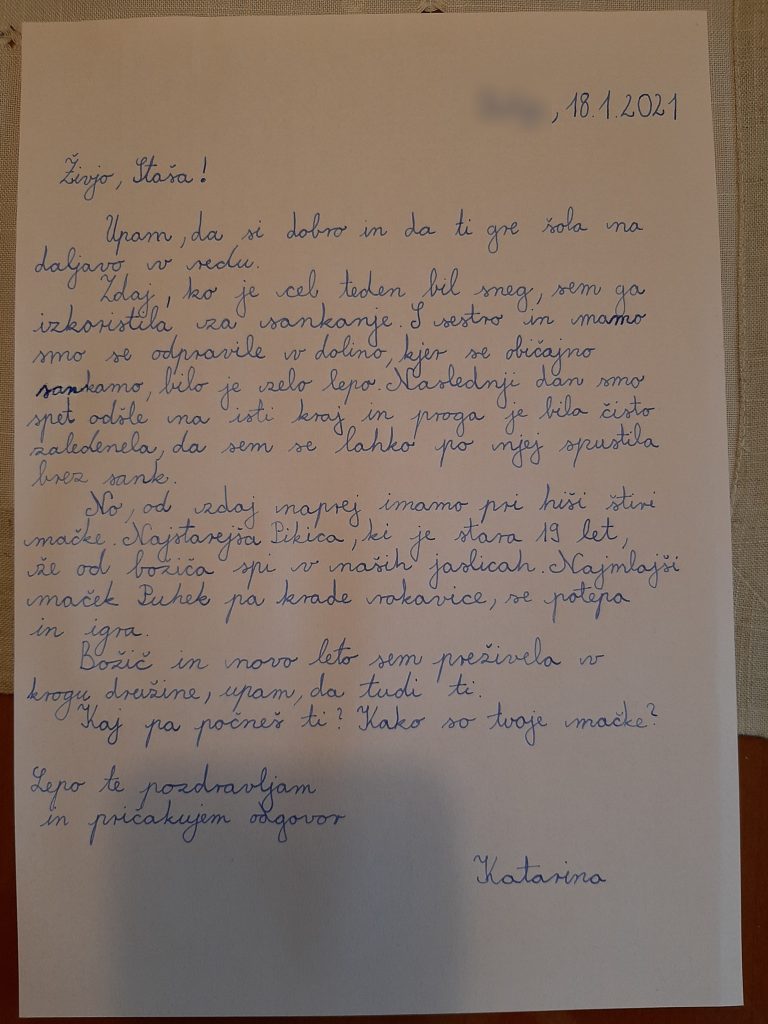 , 18.1.2021
Živjo, Staša!
Upam, da si dobro in da ti gre šola na
daljavo v redu.
Zdaj, ko je cel teden bil sneg, sem ga
izkoristila za sankanje. S sestro in mamo
smo se odpravile v dolino, kjer se običajno
sankamo, bilo je zelo lepo. Naslednji dan smo
spet odšle na isti kraj in proga je bila čisto
zaledenela, da sem se lahko po njej spustila
brez sank.
No, od zdaj naprej imamo pri hiši štiri
mačke. Najstarejša Pikica, ki je stara 19 let,
že od božiča spi v naših jaslicah. Najmlajši
maček Puhek pa krade rokavice, se potepa
in igra.
Božič in novo leto sem preživela v
krogu družine, upam, da tudi ti.
Kaj pa počneš ti? Kako so tvoje mačke?
Lepo te pozdravljam
in pričakujem odgovor
Katarina